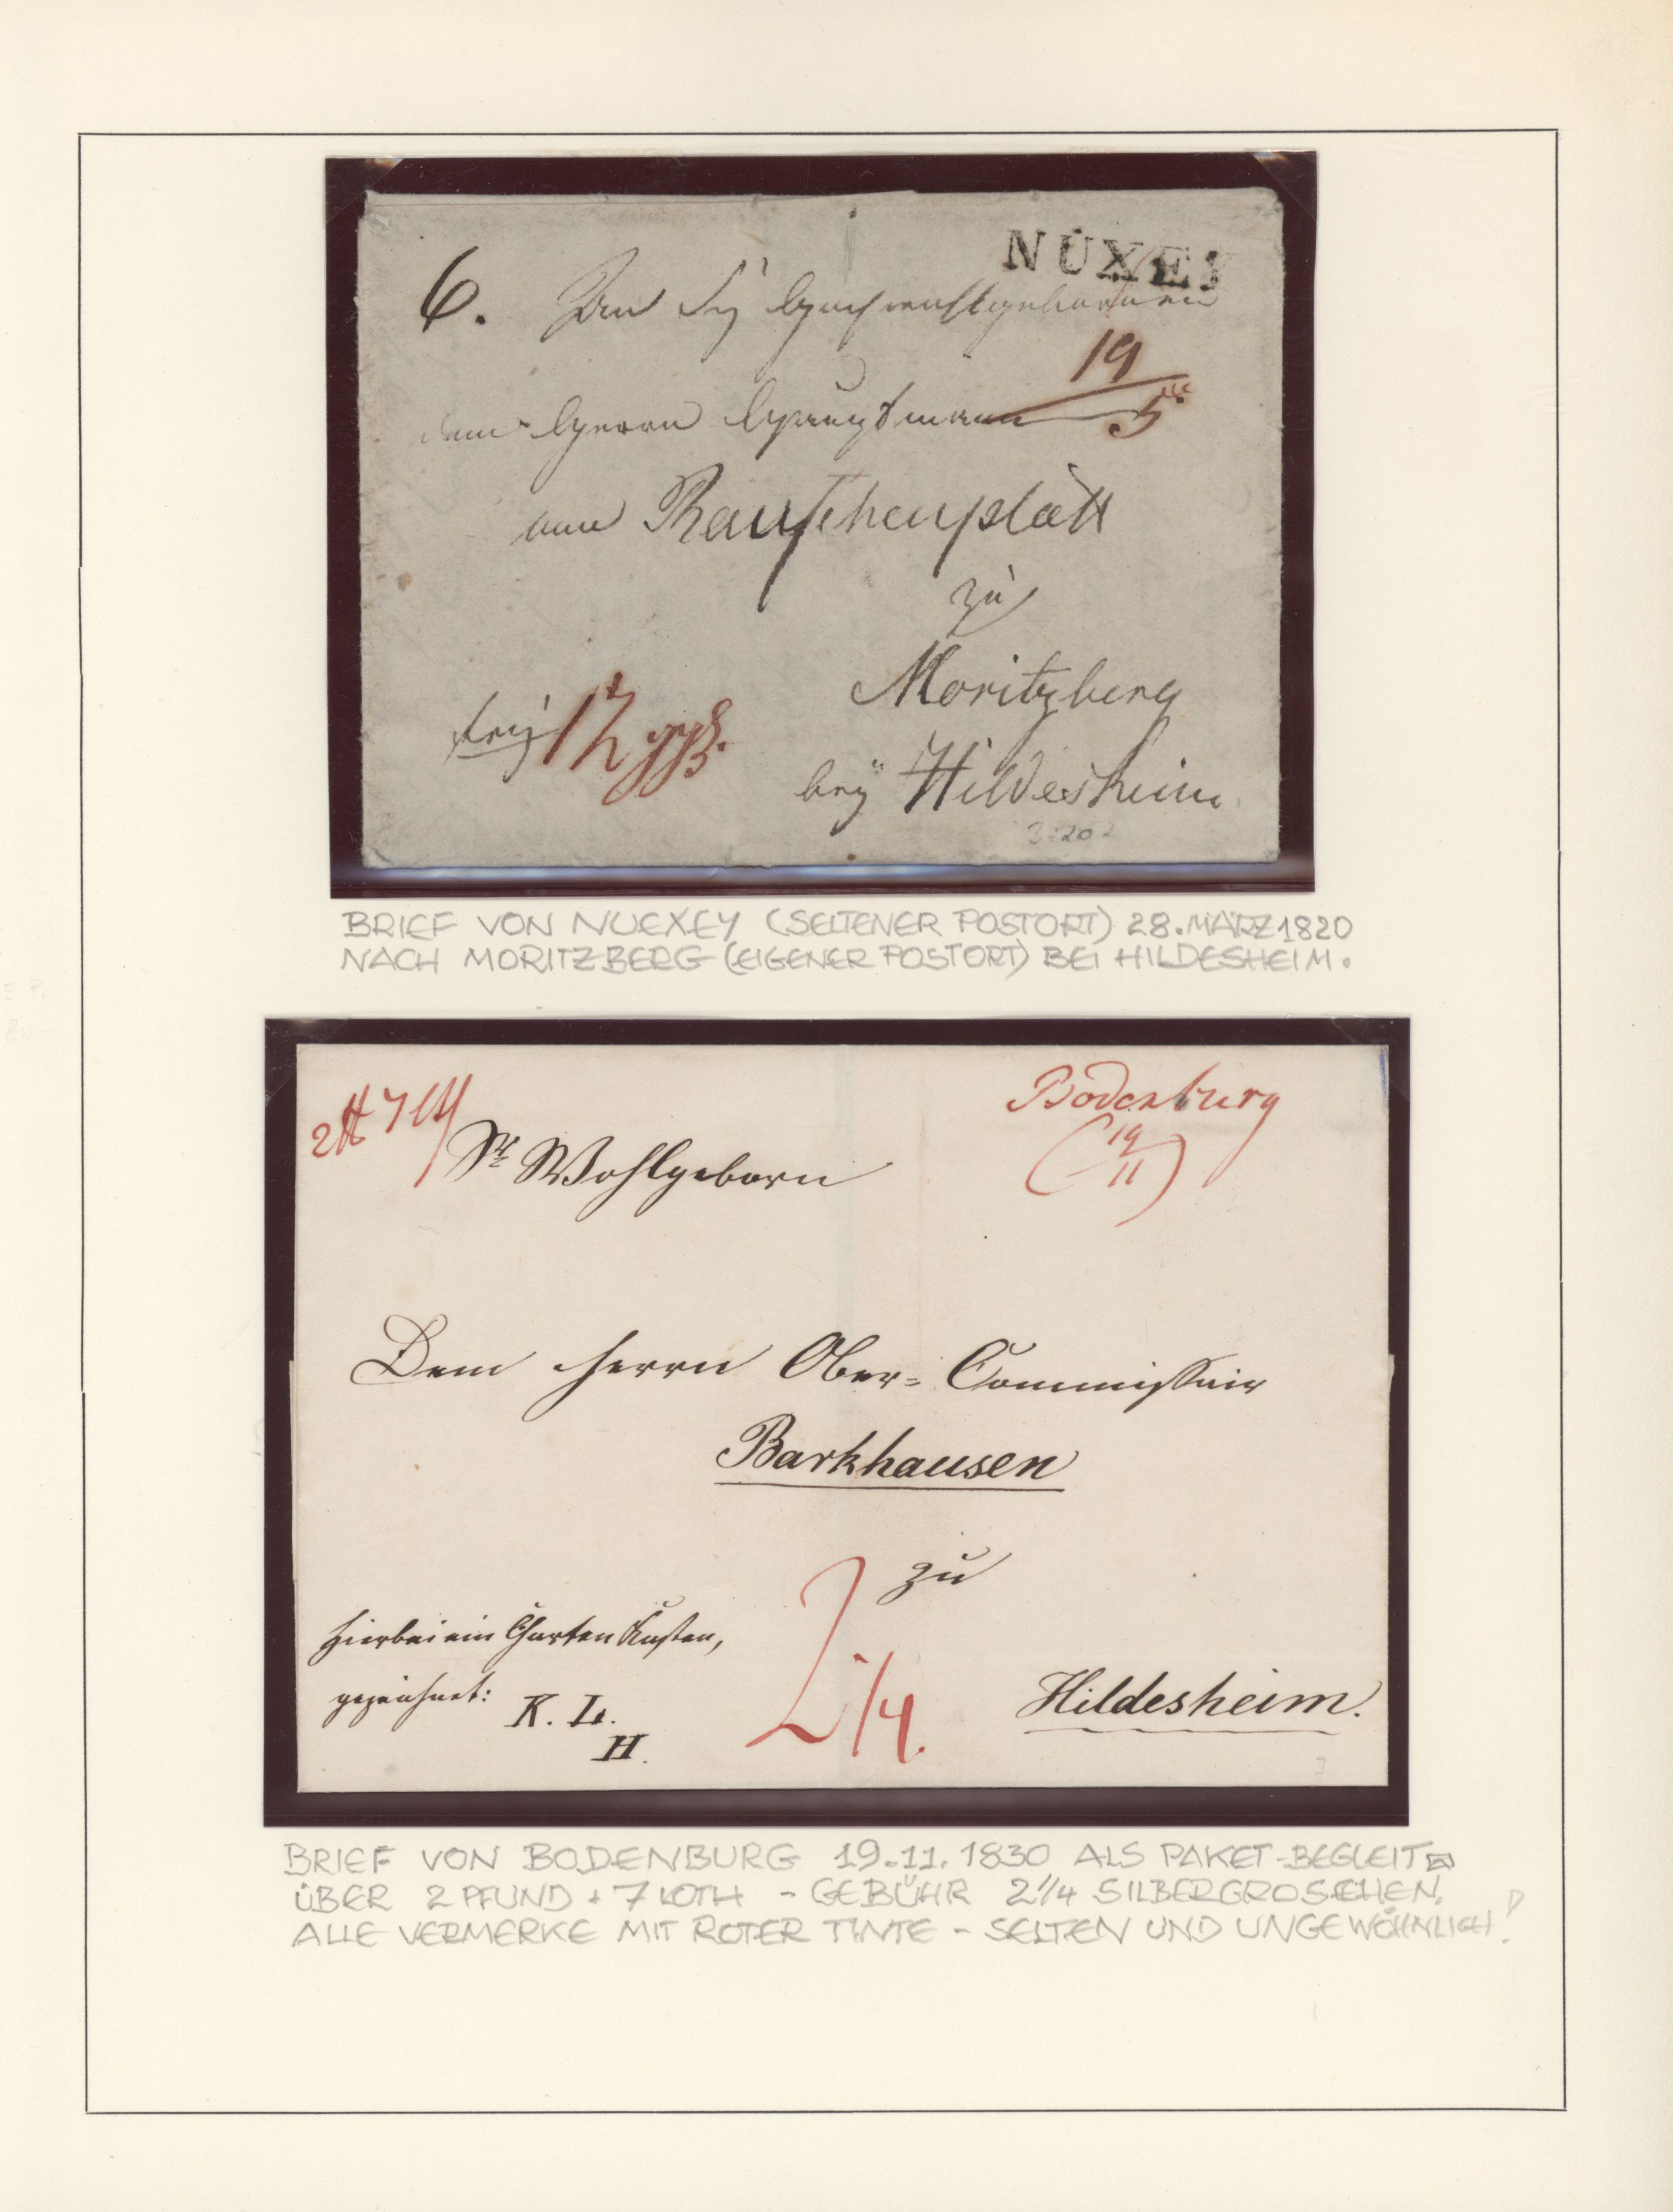 NÜXEY
6. An Sr Hochwohlgebornen
19
5
dem Herrn Hauptmann
von Rauschenplatt
zu
Moritzberg
frey 12 ggr.
bey Hildesheim
BRIEF VON NUEXEY (SELTENER POSTORT) 28. MÄRZ 1820
NACH MORITZBERG (EIGENER POSTORT) BEI HILDESHEIM.
Bodenburg
19
11
2 ℔ 7 Lth
Sr Wohlgeborn
Dem Herrn Ober-Commissair
Barkhausen
zu
hierbei ein Garten Kasten,
gezeichnet: K. L.
H.
2 1/4.
Hildesheim.
BRIEF VON BODENBURG 19.11.1830 ALS PAKET-BEGLEIT
ÜBER 2 PFUND + 7 LOTH - GEBÜHR 2 1/4 SILBERGROSCHEN.
ALLE VERMERKE MIT ROTER TINTE - SELTEN UND UNGEWÖHNLICH!